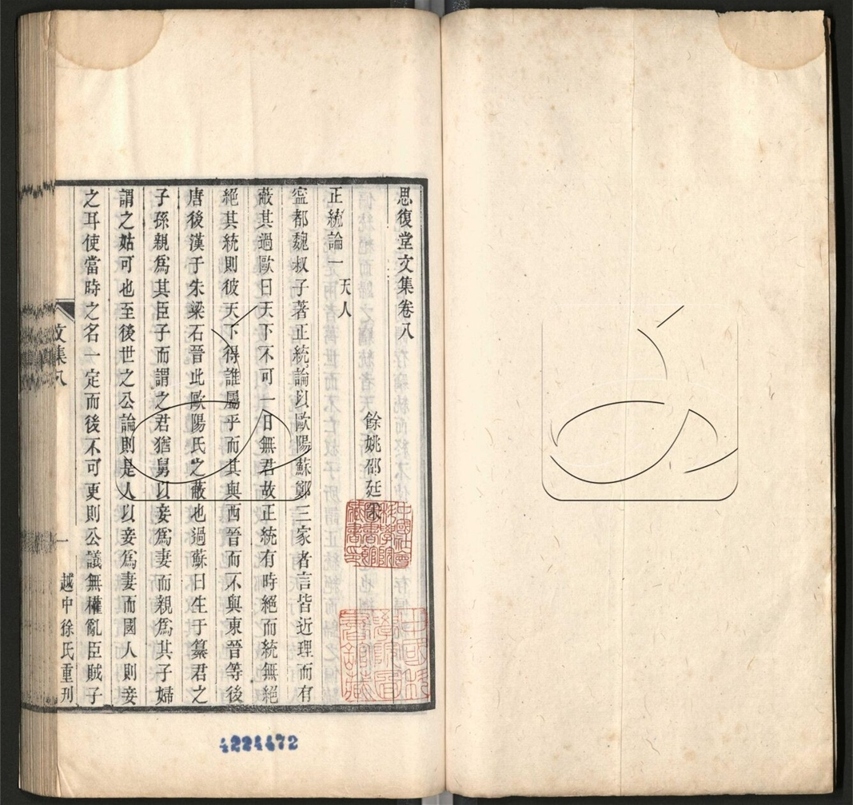 思復堂文集卷八
餘姚邵廷采
正統論一 天人
甯都魏叔子著正統論以歐陽蘇鄭三家者言皆近理而有
蔽其過歐曰天下不可一日無君故正統有時絕而統無絕
絕其統則彼天下得誰屬乎而其與西晉而不與東晉等後
唐後漢于朱梁石晉此歐陽氏之蔽也過蘇曰生于篡君之
子孫親爲其臣子而謂之君猶舅以妾爲妻而親爲其子婦
謂之姑可也至後世之公論則是人以妾爲妻而國人則妾
之耳使當時之名一定而後不可更則公議無權亂臣賊子
文集八
一
越中徐氏重刊
4224472